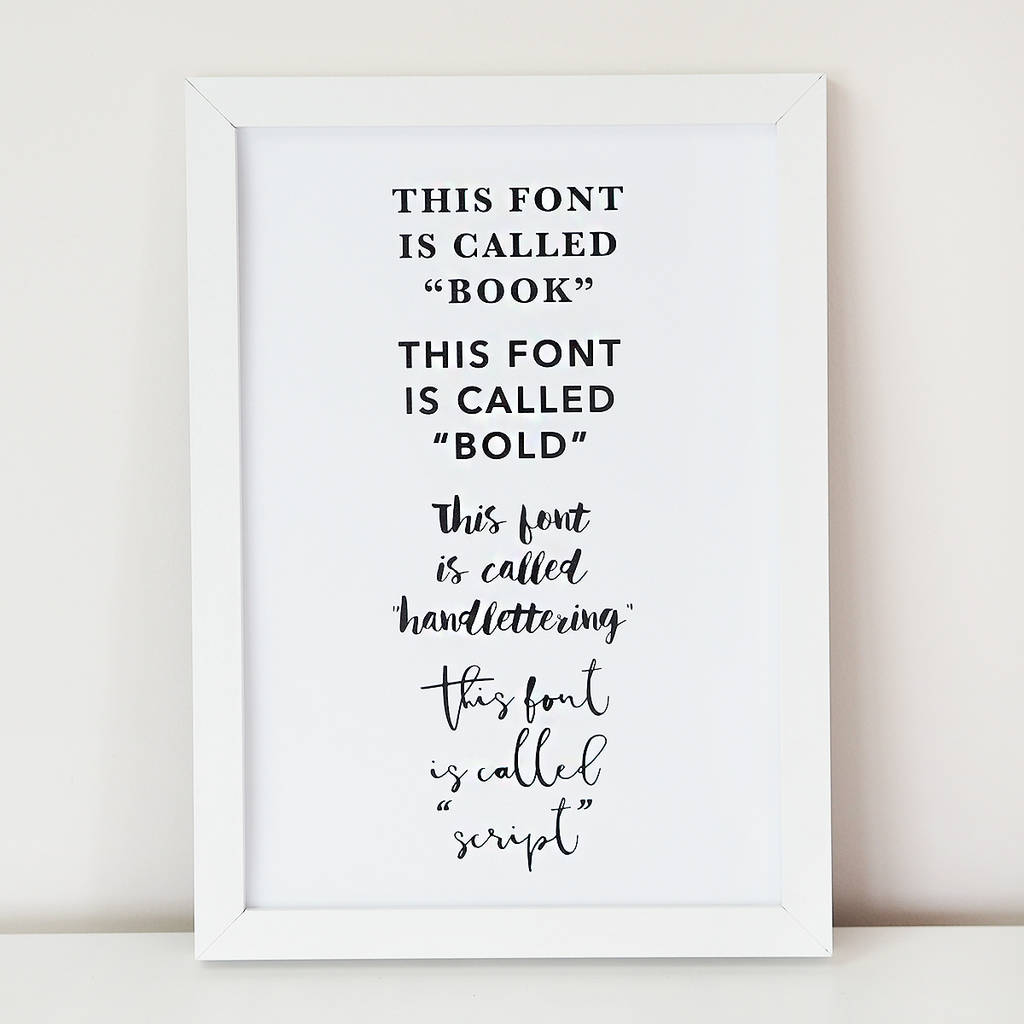 THIS FONT
IS CALLED
“BOOK”
THIS FONT
IS CALLED
“BOLD”
This font
is called
"handlettering"
this font
is called
“script”